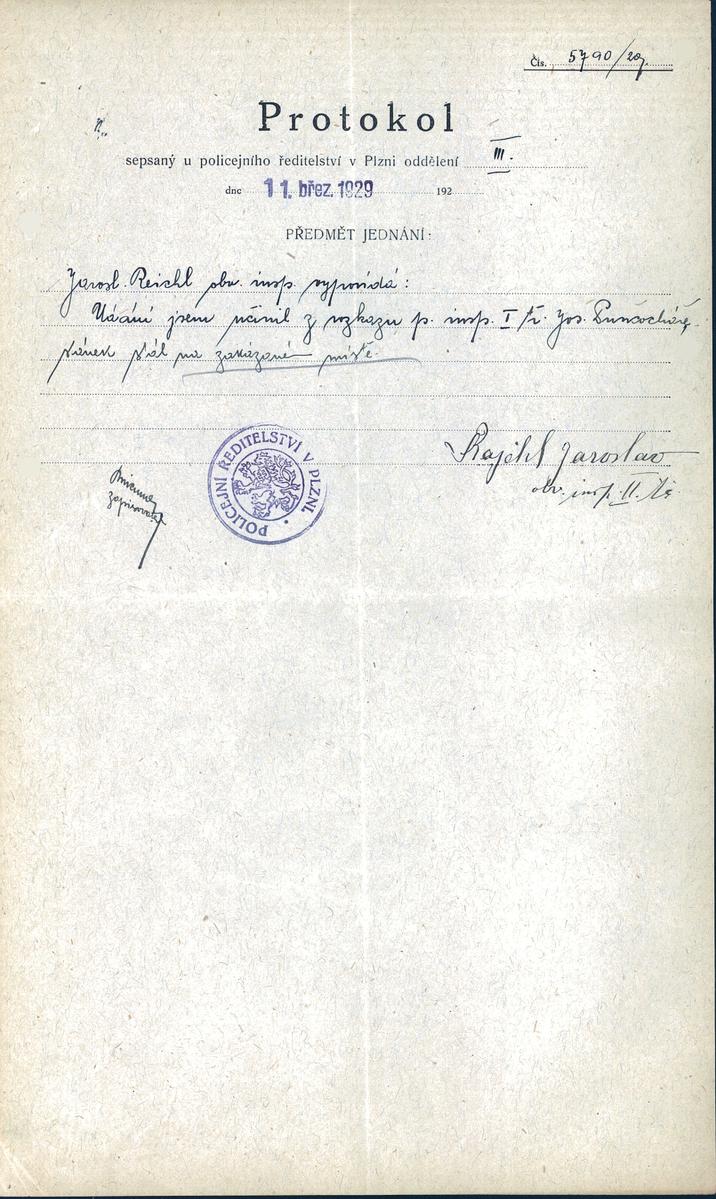 Čís. 5790/29.
Protokol
sepsaný u policejního ředitelství v Plzni oddělení III.
dne 11. břez. 1929 192
PŘEDMĚT JEDNÁNÍ:
Jarosl. Reichl obv. insp. vypovídá:
Udání jsem učinil z rozkazu p. insp. I tř. Jos. Punčocháře,
stánek stál na zakázaném místě.
Rajchl Jaroslav
obv. insp. II. tř.
POLICEJNÍ ŘEDITELSTVÍ V PLZNI.
zapisovatel